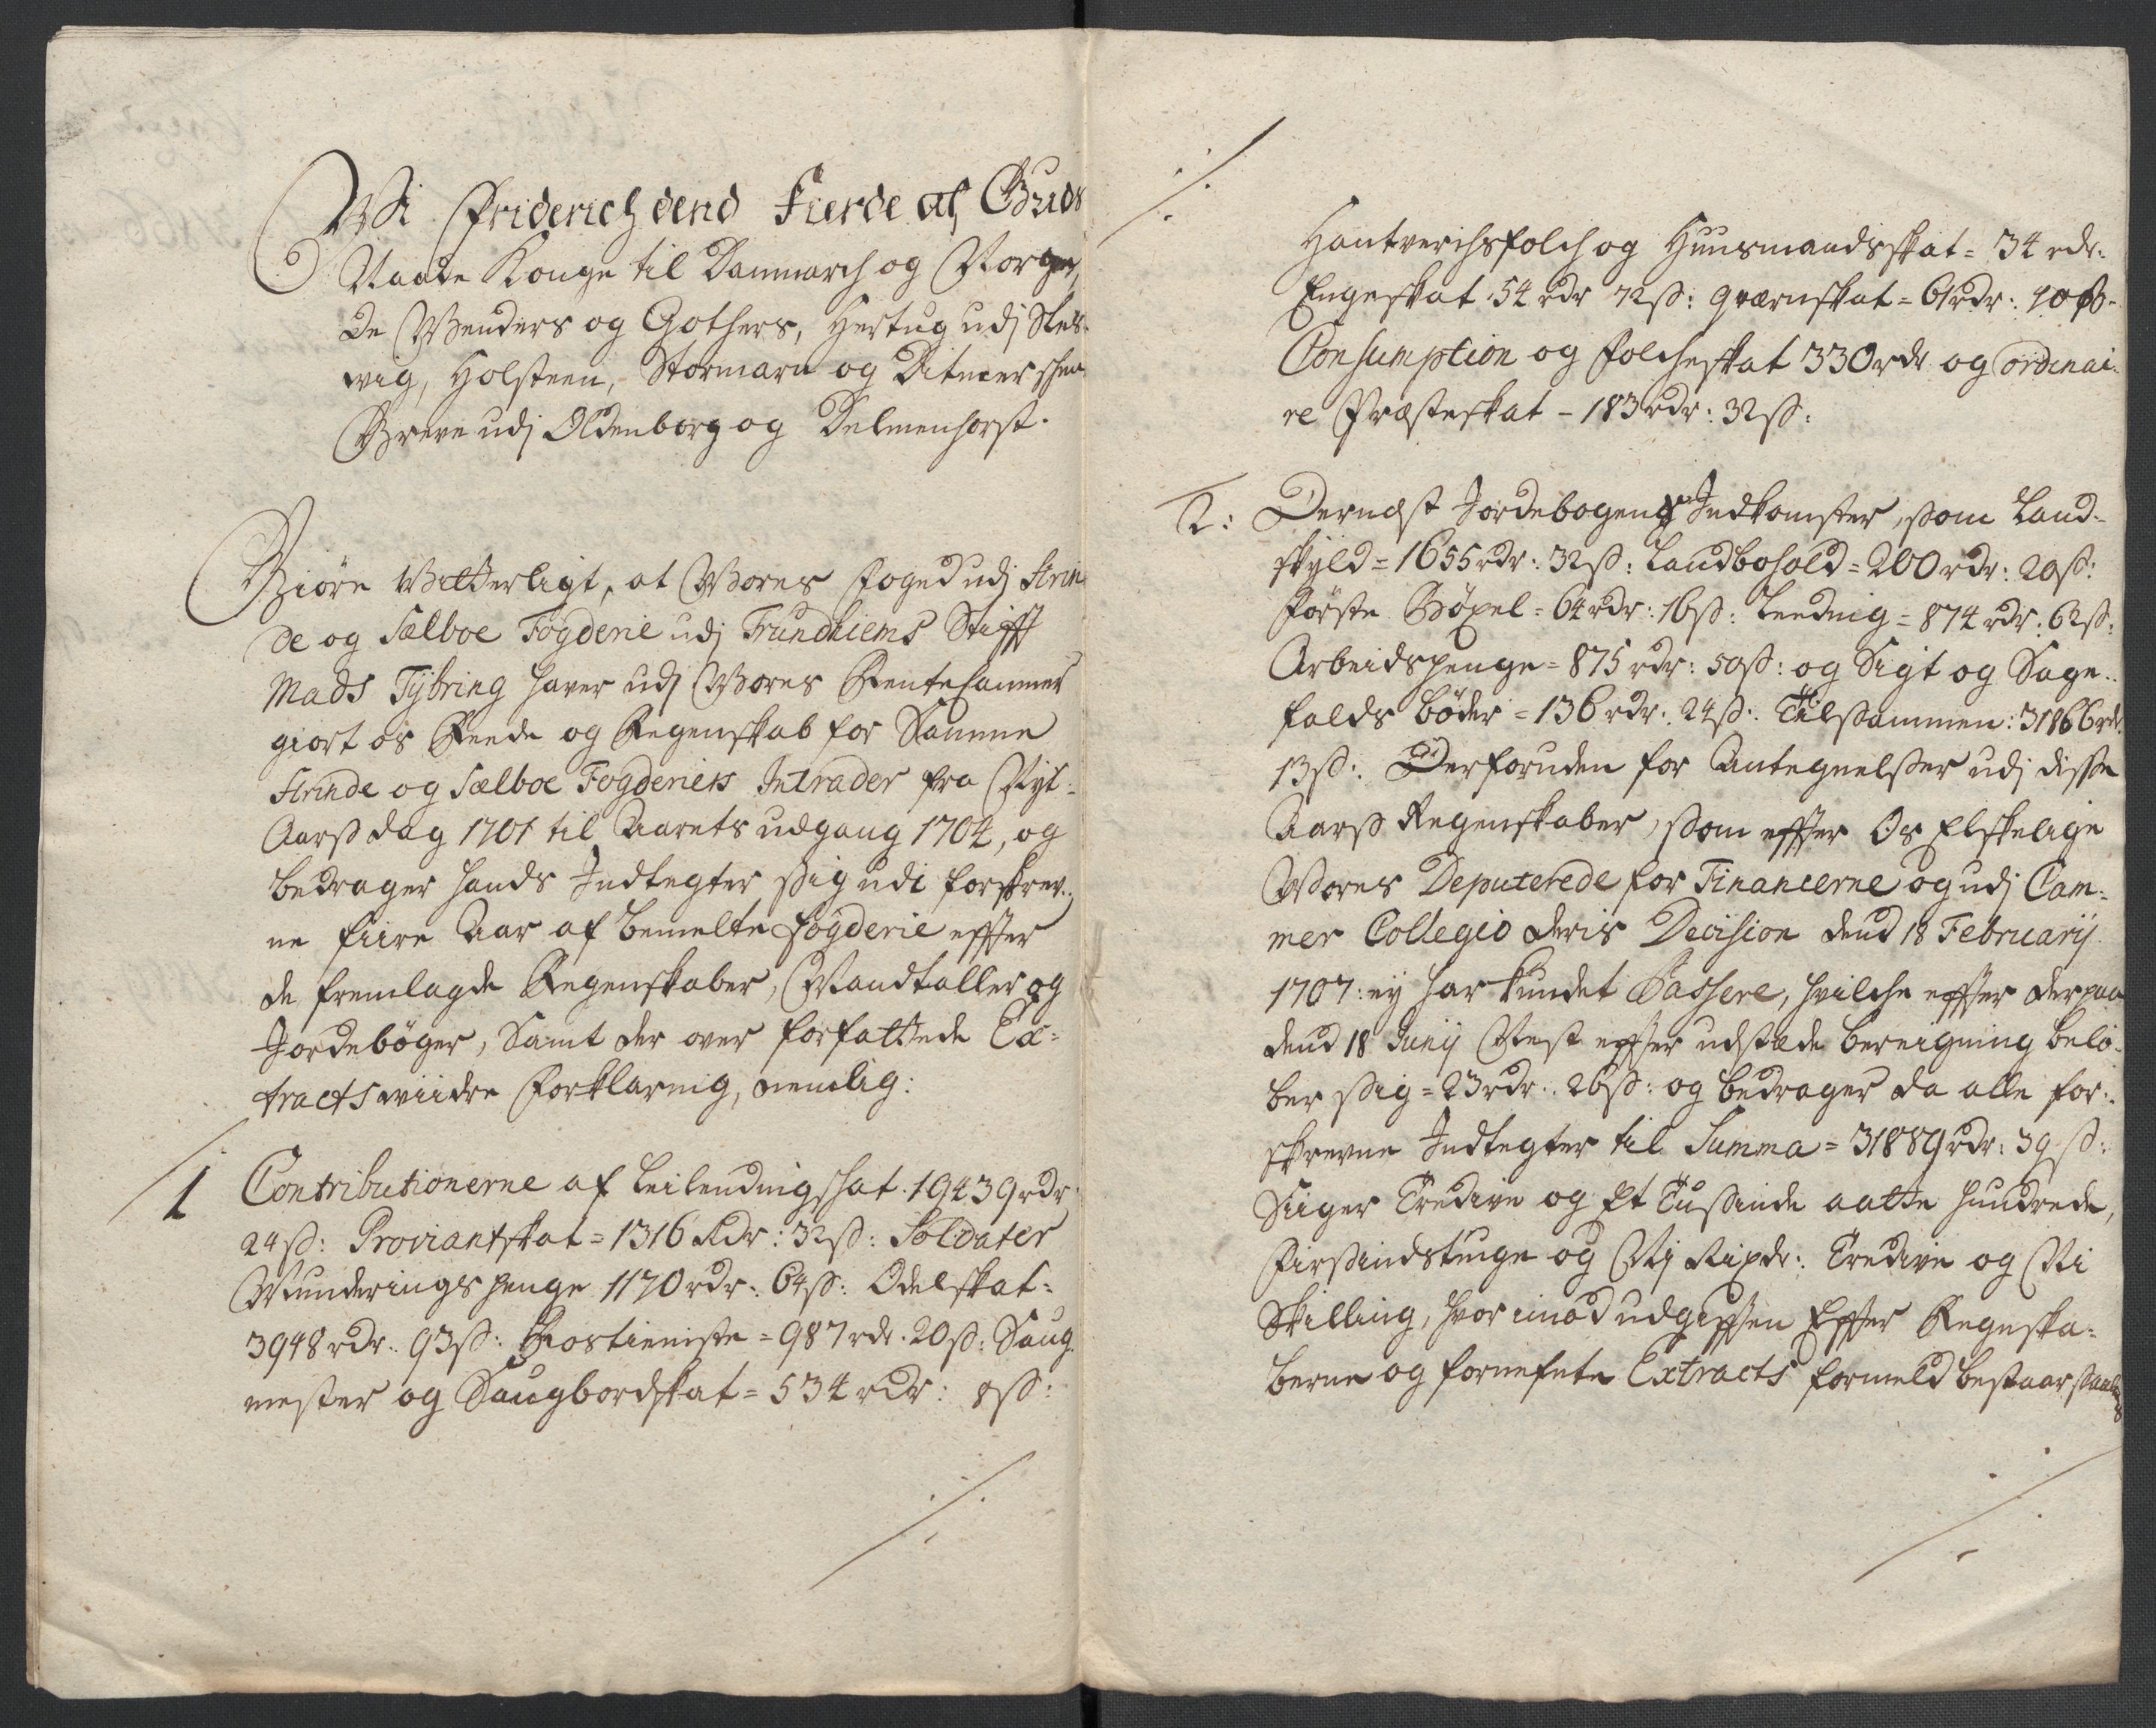 Wi Friderich dend Fierde af Guds
Naade Konge til Danmarch og Norge,
De Wenders og Gothers, Hertug udj Sles-
wig, Holsteen, Stormarn og Ditmerschen
Greve udj Oldenborg og Delmenhorst.
Giöre Witterligt, at Wores Foged udj Strin-
de og Sælboe Fogderie udj Trundhiems Stifft
Mads Tybring haver udj Wores Rentecammer
giort os Reede og Regenskab for Samme
Strinde og Sælboe Fogderies Intrader fra Nyt-
Aarss dag 1701 til Aarets udgang 1704, og
bedrager hands Indtegter ssig udi forskrev-
ne fiire Aar af bemelte Fogderie effter
de fremlagde Regenskaber, Mandtaller og
Jordebøger, Samt der over forfattede Ex-
tracts wiidre Forklaring, nemlig:
1 Contributionerne af Leilendingschat. 19439 rdr
24 ss: Proviantskat = 1316 Rdr: 32 ss: Soldater
Munderings penge 1170 rdr: 64 ss: Odelskat =
3948 rdr: 93 ss: Rostieniste = 987 rdr. 20 ss: Saug
mester og Saugbordskat = 534 rdr: 8 ss:
./.
./.
Hantverchsfolch og Huusmandsskat = 34 rdr:
Engeskat 54 rdr 72 ss: qværnskat = 61 rdr: 40 ss.
Consumption og Folcheskat 330 rdr og ordinai-
re Præsteskat - 183 rdr: 32 ss:
2: Dernæst Jordebogens Indkomster, ssom Land-
skyld = 1655 rdr: 32 ss: Landbohold = 200 rdr: 20 ss:
Förste Böxel = 64 rdr: 16 ss: Leeding = 874 rdr: 62 ss:
Arbeidspenge = 875 rdr: 50 ss: og Sigt og Sage-
falds bøder = 136 rdr: 24 ss: Tilssammen: 31866 rdr:
13 ss: Derforuden for Antegnelsser udj disse
Aarss Regenskaber, ssom effter Os Elskelige
Wores Deputerede for Financerne og udj Cam-
mer Collegio deris Decision dend 18 Februarij
1707: ey har kundet Passere, hvilche effter derpaa
dend 18 Junij Nest effter udstæde bereigning belö-
ber ssig = 23 rdr: 26 ss: og bedrager da alle for-
skrevne Indtegter til Summa = 31889 rdr: 39 ss:
Siiger Tredive og Et Tussinde aatte hundrede,
Firssindstiuge og Nj Rixdr: Tredive og Ni
Skilling, hvor imod udgifften Effter Regenska-
berne og fornefnte Extracts formeld bestaar ssaaledes
./.